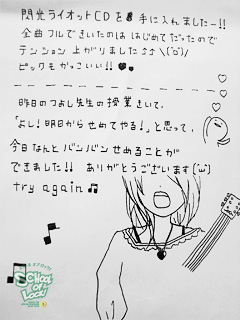 閃光ライオットCDを手に入れましたー!!
全曲フルできいたのは はじめてだったので
テンション上がりました⤴⤴＼(^o^)/
ピックもかっこいい!! ♥♥
昨日のつよし先生の授業きいて、
「よし!明日からせめてやる!」と思って、
今日なんと バンバン せめることが
できました!! ありがとうございます(^ω^)
try again♫
School of Lock!